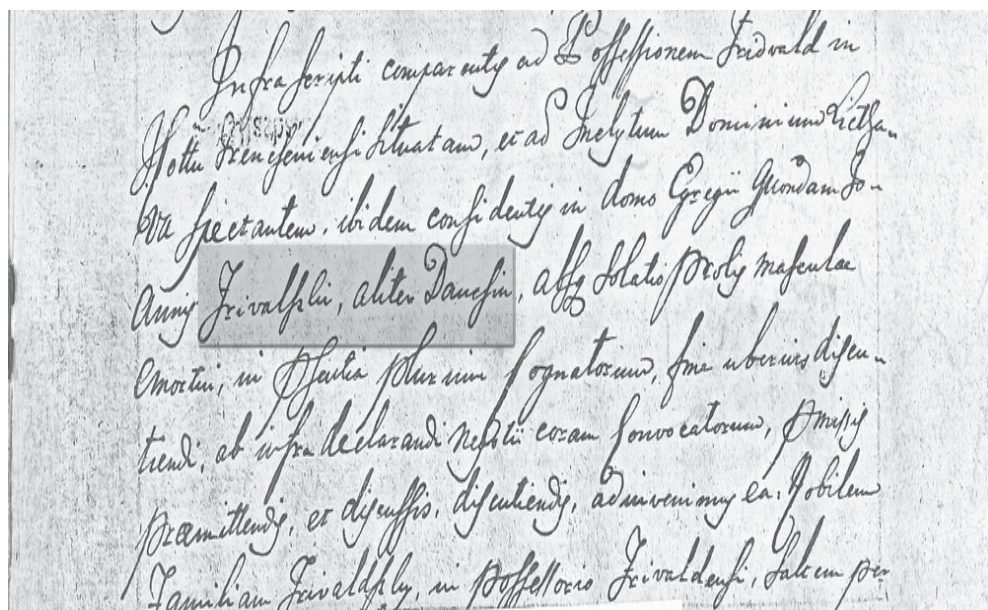 Infrascripti comparentes ad Possessionem Fridvald in
Cottu Trencseniensi situatam, et ad Inclytum Dominium Lietha-
va spectantem, ibidem considentes in domo Egregii Quondam Jo-
annis Frivalszki, aliter Dancsin, absq solatio prolis masculae
emortui, in Psentia plurium Cognatorum, fine uberius discu-
tiendi, ab infra declarandi Negotii coram convocatorum, pmissis
praemittendis, et discussis, discutiendis, adinvenimus ea. Nobilem
Familiam Frivaldszky, in Possessorio Frivaldensi, saltem per